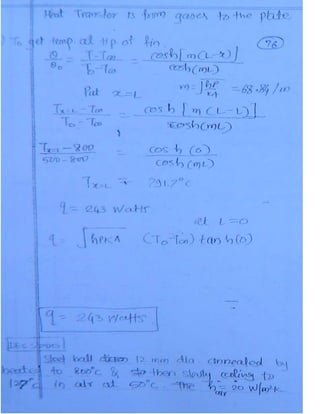 Heat Transfer is from gases to the plate
76
To get temp. at tip of fin
θ/θ₀ = T-T∞/T₀-T∞ = cosh[m(L-x)]/cosh(mL)
Put x=L m=√hP/KA = 68.84/m
Tx=L-T∞/T₀-T∞ = cosh[m(L-L)]/cosh(mL)
Tx=L-800/500-800 = cosh(0)/cosh(mL)
Tx=L = 791.7°c
q = 243 Watts
at L=0
q = √hPKA (T₀-T∞) tanh(0)
q = 243 Watts
Steel ball 12 mm dia annealed by
heated to 800°c & then slowly cooling to
127°c in air at 50°c. The h air = 20 W/m²K